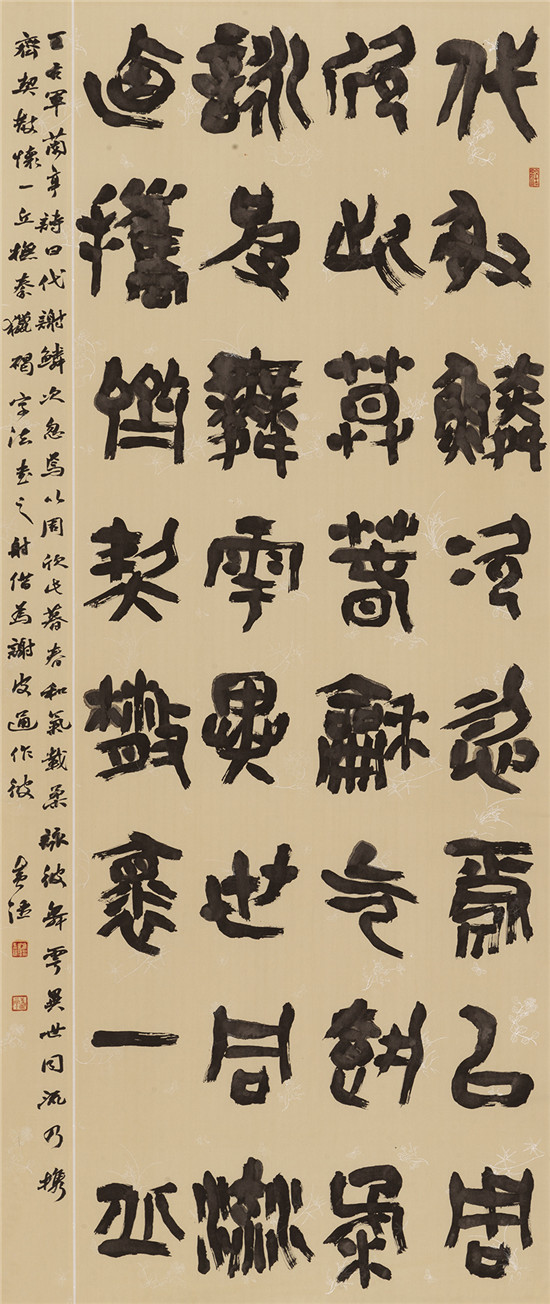 代射鱗次忽焉㠯周
欣此暮春龢气載柔
詠皮舞雩異世同流
迺攜齊契散褱一丘
王右軍蘭亭詩曰代謝鱗次忽焉以周欣此暮春和氣載柔詠彼舞雩異世同流乃攜
齊契散懷一丘撫秦獵碣字法書之射借為謝皮通作彼 黃惇